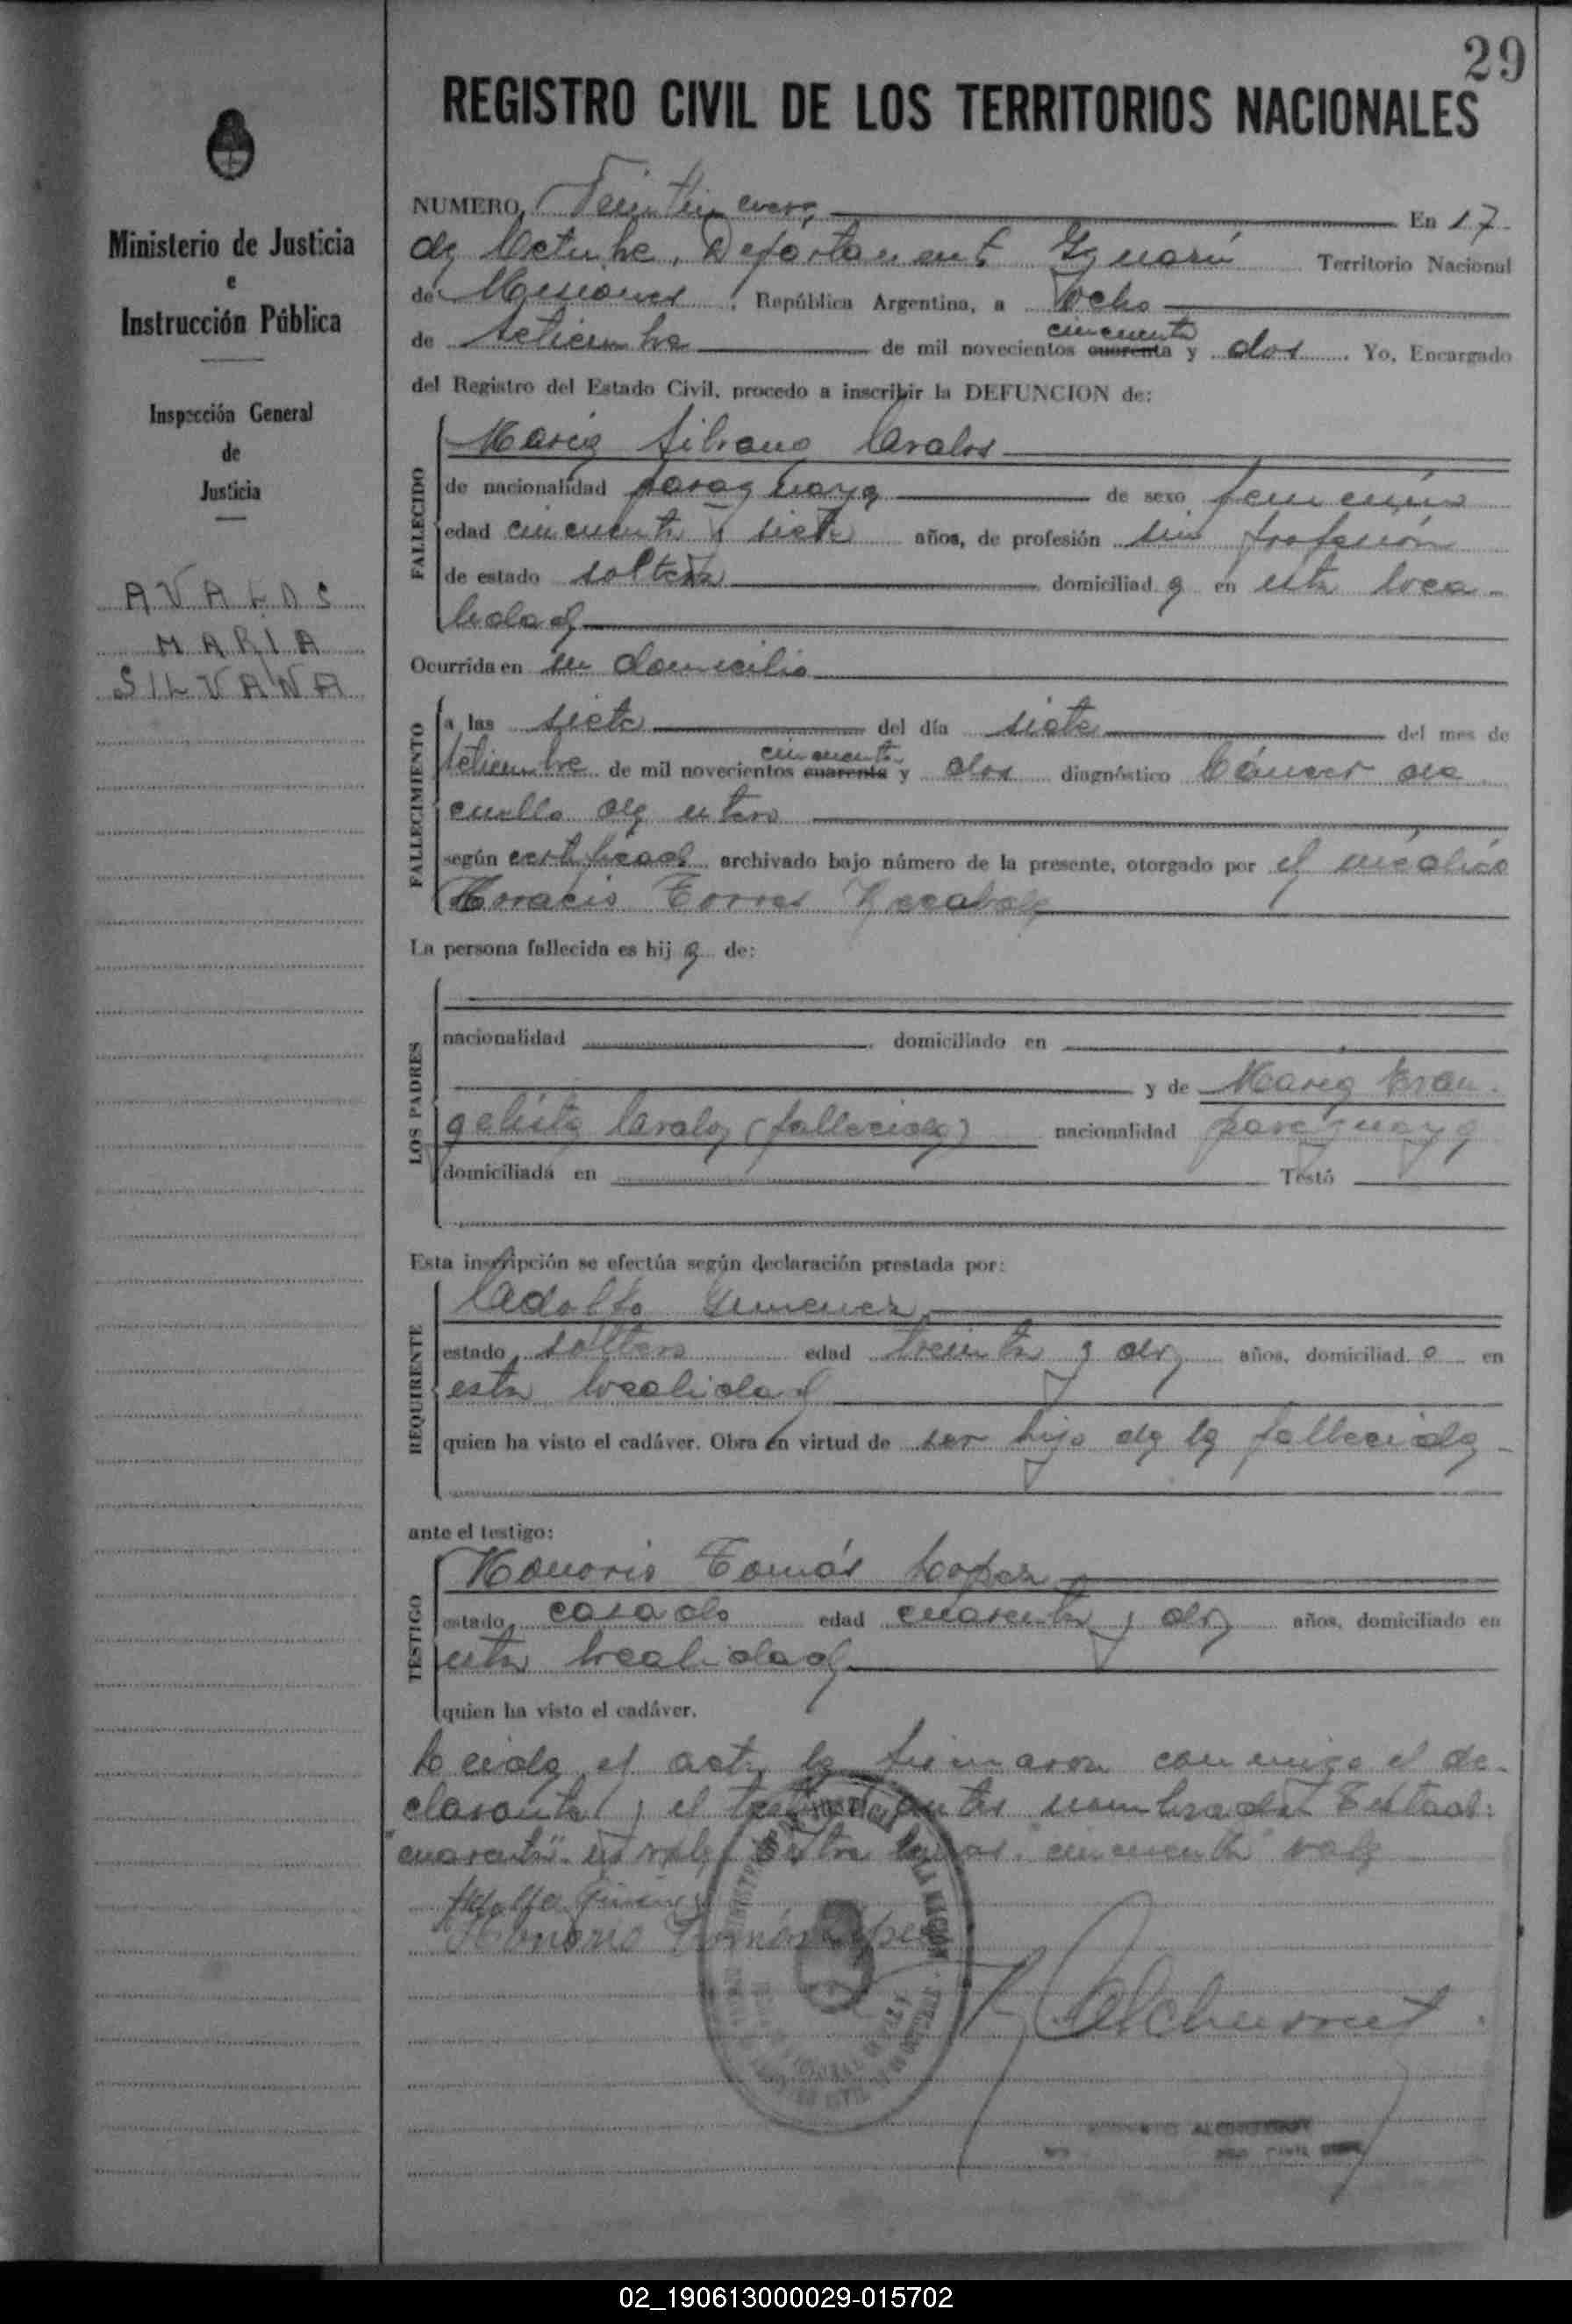 29
REGISTRO CIVIL DE LOS TERRITORIOS NACIONALES
Ministerio de Justicia
e
Instrucción Pública
Inspección General
de
Justicia
AVALOS
MARIA
SILVANA
NUMERO Veintinueve En 17
de Octubre, Departamento Territorio Nacional
de Misiones, República Argentina, a ocho
de setiembre de mil novecientos cuarenta cincuenta y dos. Yo, Encargado
del Registro del Estado Civil, procedo a inscribir la DEFUNCION de:
FALLECIDO
María Silvana Avalos
de nacionalidad paraguaya de sexo femenino
edad cincuenta y siete años, de profesión sin profesión
de estado soltera domiciliada en esta loca-
lidad
Ocurrida en su domicilio
FALLECIMIENTO
a las siete del día siete del mes de
setiembre de mil novecientos cuarenta cincuenta y dos diagnóstico Cáncer de
cuello de utero
según certificado archivado bajo número de la presente, otorgado por el médico
Horacio Torres
La persona fallecida es hija de:
LOS PADRES
nacionalidad domiciliado en
y de María Evan-
gelista Avalos (fallecida) nacionalidad paraguaya
domiciliada en Testó
Esta inscripción se efectúa según declaración prestada por:
REQUIRENTE
Adolfo Gimenez
estado soltero edad treinta y dos años, domiciliado en
esta localidad
quien ha visto el cadáver. Obra en virtud de ser hijo de la fallecida
ante el testigo:
TESTIGO
Honorio Tomás Lopez
estado casado edad cuarenta y dos años, domiciliado en
esta localidad
quien ha visto el cadáver.
Leida el acta la firmaron conmigo el de-
clarante y el testigo antes nombrado. Testado:
"cuarenta" no vale. Entre lineas: "cincuenta" vale
Adolfo Gimenez
Honorio Tomás Lopez
02_190613000029-015702